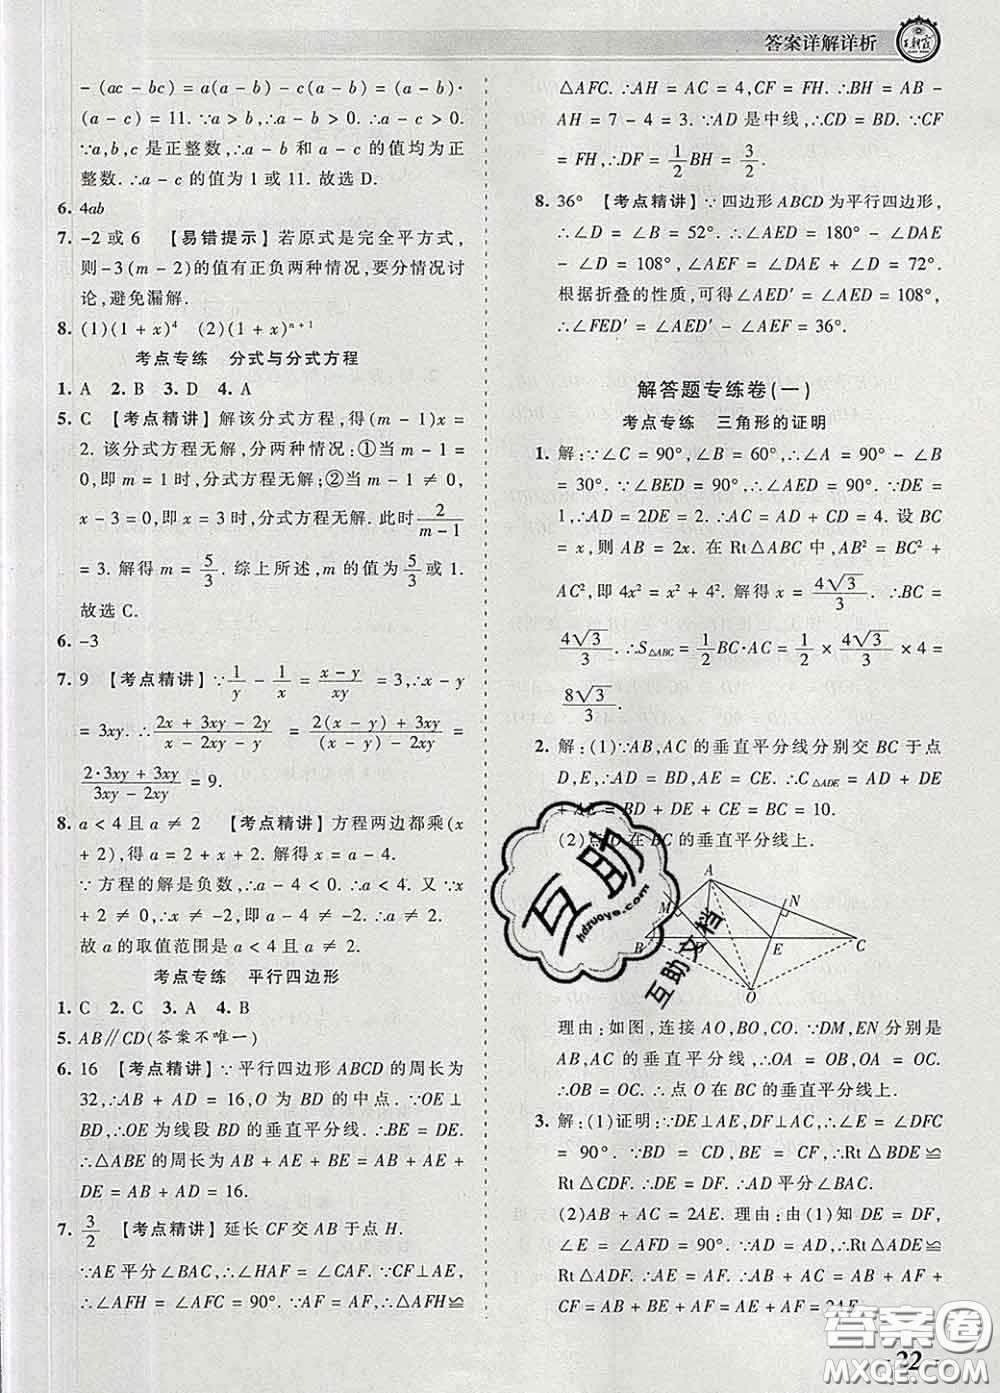 答案详解详析
王朝霞
-(ac-bc)=a(a-b)-c(a-b)=(a-b)·
(a-c)=11.∵a>b,∴a-b>0.∴a-c>0.
∵a,b,c是正整数,∴a-b和a-c的值均为正
整数.∴a-c的值为1或11.故选D.
6. 4ab
7. -2或6 【易错提示】若原式是完全平方式,
则-3(m-2)的值有正负两种情况,要分情况讨
论,避免漏解.
8. (1)(1+x)⁴ (2)(1+x)ⁿ⁺¹
考点专练 分式与分式方程
1. A 2. B 3. D 4. A
5. C 【考点精讲】解该分式方程,得(m-1)x=
2.该分式方程无解,分两种情况:①当m-1=
0,即m=1时,分式方程无解;②当m-1≠0,
x-3=0,即x=3时,分式方程无解.此时2/(m-1)
=3.解得m=5/3.综上所述,m的值为5/3或1.
故选C.
6. -3
7. 9 【考点精讲】∵1/y-1/x=(x-y)/xy=3,∴x-y
=3xy.∴(2x+3xy-2y)/(x-2xy-y)=(2(x-y)+3xy)/(x-y-2xy)=
(2·3xy+3xy)/(3xy-2xy)=9.
8. a<4且a≠2 【考点精讲】方程两边都乘(x
+2),得a=2+x+2.解得x=a-4.
∵方程的解是负数,∴a-4<0.∴a<4.又∵x
+2≠0,∴x≠-2,即a-4≠-2.∴a≠2.
故a的取值范围是a<4且a≠2.
考点专练 平行四边形
1. C 2. C 3. A 4. B
5. AB∥CD(答案不唯一)
6. 16 【考点精讲】∵平行四边形ABCD的周长为
32,∴AB+AD=16,O为BD的中点.∵OE⊥
BD,∴OE为线段BD的垂直平分线.∴BE=DE.
∴△ABE的周长为AB+AE+BE=AB+AE+
DE=AB+AD=16.
7. 3/2 【考点精讲】延长CF交AB于点H.
∵AE平分∠BAC,∴∠HAF=∠CAF.∵CF⊥AE,
∴∠AFH=∠AFC=90°.∵AF=AF,∴△AFH≌
△AFC.∴AH=AC=4,CF=FH.∴BH=AB-
AH=7-4=3.∵AD是中线,∴CD=BD.∵CF
=FH,∴DF=1/2BH=3/2.
8. 36° 【考点精讲】∵四边形ABCD为平行四边形,
∴∠D=∠B=52°.∴∠AED=180°-∠DAE
-∠D=108°,∠AEF=∠DAE+∠D=72°.
根据折叠的性质,可得∠AED′=∠AED=108°,
∴∠FED′=∠AED′-∠AEF=36°.
解答题专练卷(一)
考点专练 三角形的证明
1. 解:∵∠C=90°,∠B=60°,∴∠A=90°-∠B
=30°.∵∠BED=90°,∴∠AED=90°.∵DE=
1,∴AD=2DE=2.∴AC=AD+CD=4.设BC
=x,则AB=2x.在Rt△ABC中,AB²=BC²+
AC²,即4x²=x²+4².解得x=4√3/3.∴BC=
4√3/3.∴S△ABC=1/2BC·AC=1/2×4√3/3×4=
8√3/3.
2. 解:(1)∵AB,AC的垂直平分线分别交BC于点
D,E,∴AD=BD,AE=CE.∴C△ADE=AD+DE
+AE=BD+DE+CE=BC=10.
(2)点O在BC的垂直平分线上.
A
M
N
B
E
C
O
理由:如图,连接AO,BO,CO.∵DM,EN分别是
AB,AC的垂直平分线,∴OA=OB,OA=OC.
∴OB=OC.∴点O在BC的垂直平分线上.
3. 解:(1)证明:∵DE⊥AE,DF⊥AC,∴∠E=∠DFC
=90°.∵BD=CD,BE=CF,∴Rt△BDE≌
Rt△CDF.∴DE=DF.∴AD平分∠BAC.
(2)AB+AC=2AE.理由:由(1)知DE=DF,
∠E=∠AFD=90°.∵AD=AD,∴Rt△ADE≌
Rt△ADF.∴AE=AF.∴AB+AC=AB+AF+
CF=AB+BE+AF=AE+AF=2AE.
22
互助
hdzuoye.com
互助文档
答案圈
MXQE.COM